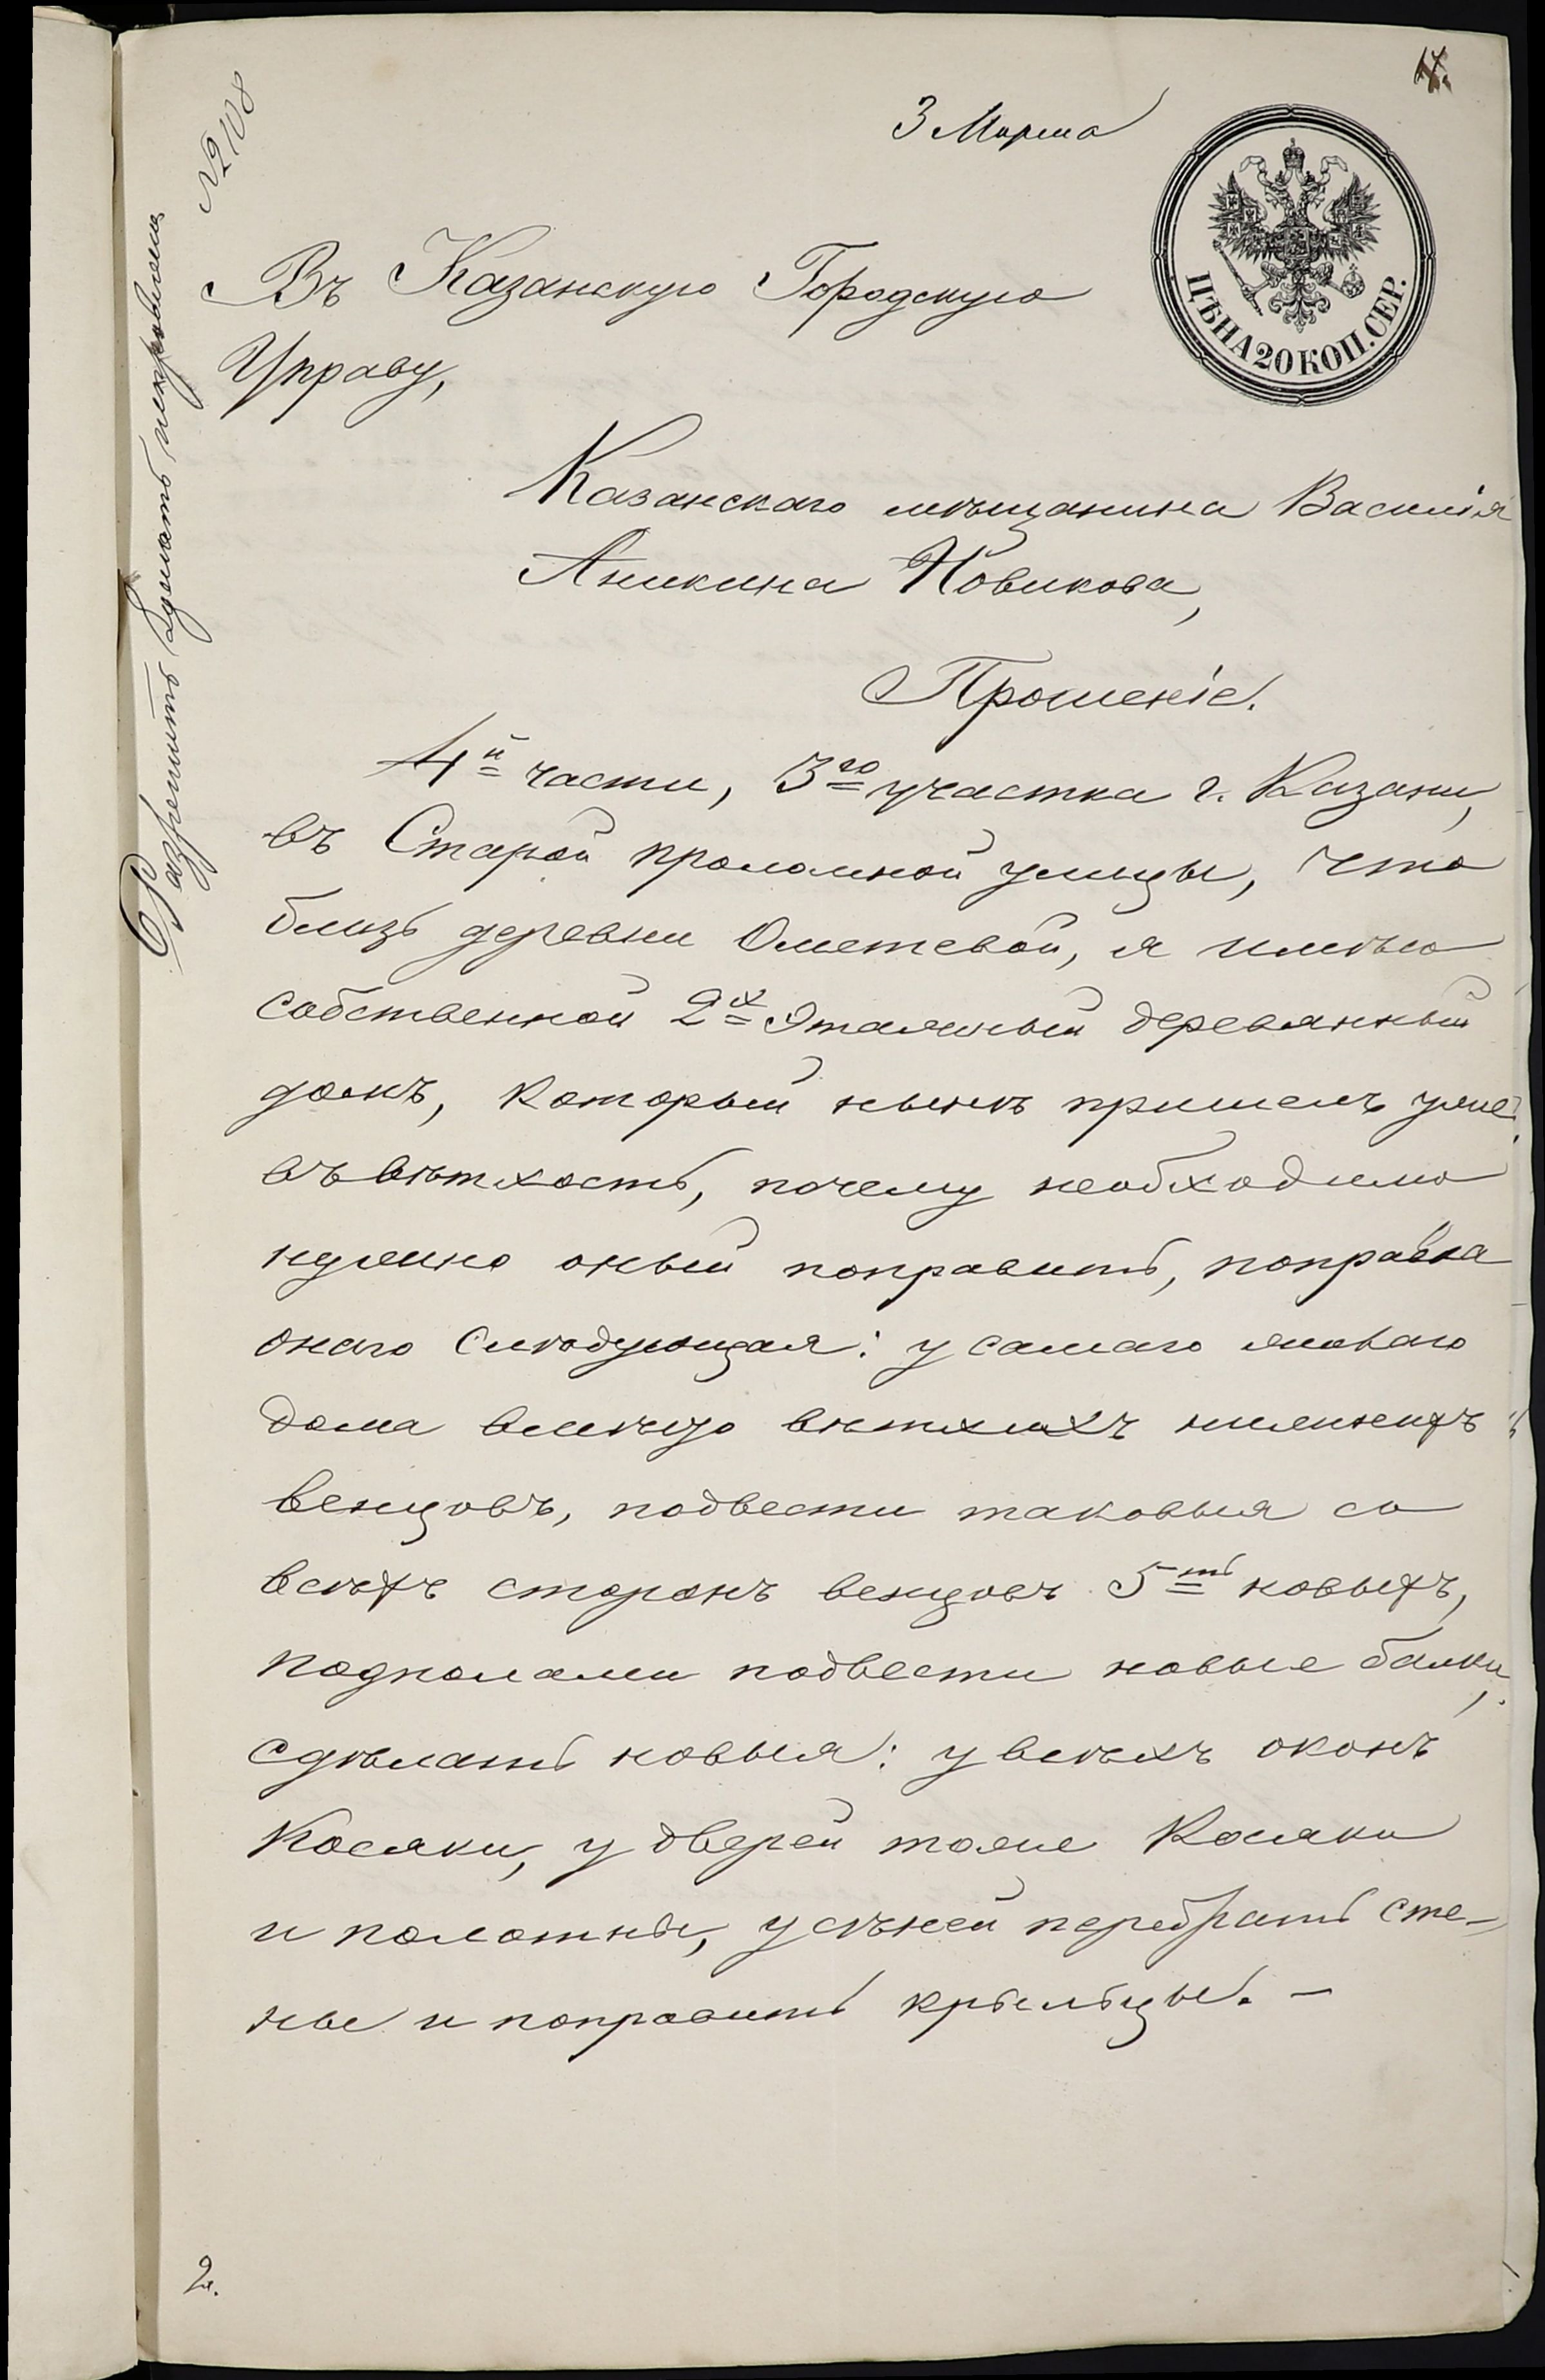 17.
3 Марта
№ 108
ЦѢНА 20 КОП. СЕР.
Въ Казанскую Городскую
Управу,
Казанскаго мѣщанина Василія
Аникина Новикова,
Прошеніе.
Разрешить сделать исправления
4й части, 3го участка г. Казани,
въ Старой проломной улицы, что
близь деревни Ометевой, я имѣю
собственной 2х Этажный деревянный
домъ, который нынѣ пришелъ уже
въ вѣтхость, почему необходимо
нужно оный поправить, поправка
онаго Слѣдующая: у самаго жилаго
дома вмѣсто вѣтхихъ нижнихъ
венцовъ, подвести таковыя со
всѣхъ сторонъ венцовъ 5ть новыхъ,
подполами подвести новые балки,
сдѣлать новыя: у всѣхъ оконъ
Косяки, у дверей тоже Косяки
и полотны, у сѣней перебрать сте-
ны и поправить крыльцы. –
2.